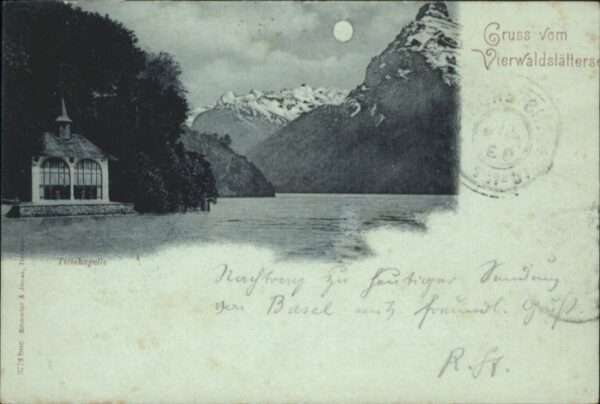 Gruss vom
Vierwaldstätterse
Tellskapelle
Nachtrag zu heutiger Sendung
Basel mit freundl. Gruß.
R. St.